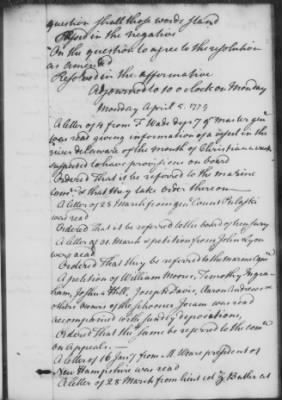 question shall those words stand
Passed in the negative
On the question to agree to the resolution
as amended
Resolved in the affirmative
Adjourned to 10 o clock on Monday
Monday April 5. 1779
A letter of 4 from F. Wade dep y q master gen
was read giving information of a vessel in the
river delaware off the mouth of Christiana creek
supposed to have provisions on board
Ordered That it be referred to the marine
comee & that they take order thereon
A letter of 28 March from gen Count Pulaski
was read
Ordered that it be referred to the board of treasury
A letter of 31. March & petition from John Lyon
were read
Ordered That they be referred to the marine comee
A petition of William Moores, Timothy Ingra-
ham, Joshua Hill, Joseph Davis, Aaron Andrews &
others owners of the schooner was read
accompanied with sundry depositions,
Ordered That the same be referred to the comee
on Appeals.—
A letter of 16 Jany from M. Weare president of
New Hampshire was read
A letter of 28 March from lieut col Z Butler at